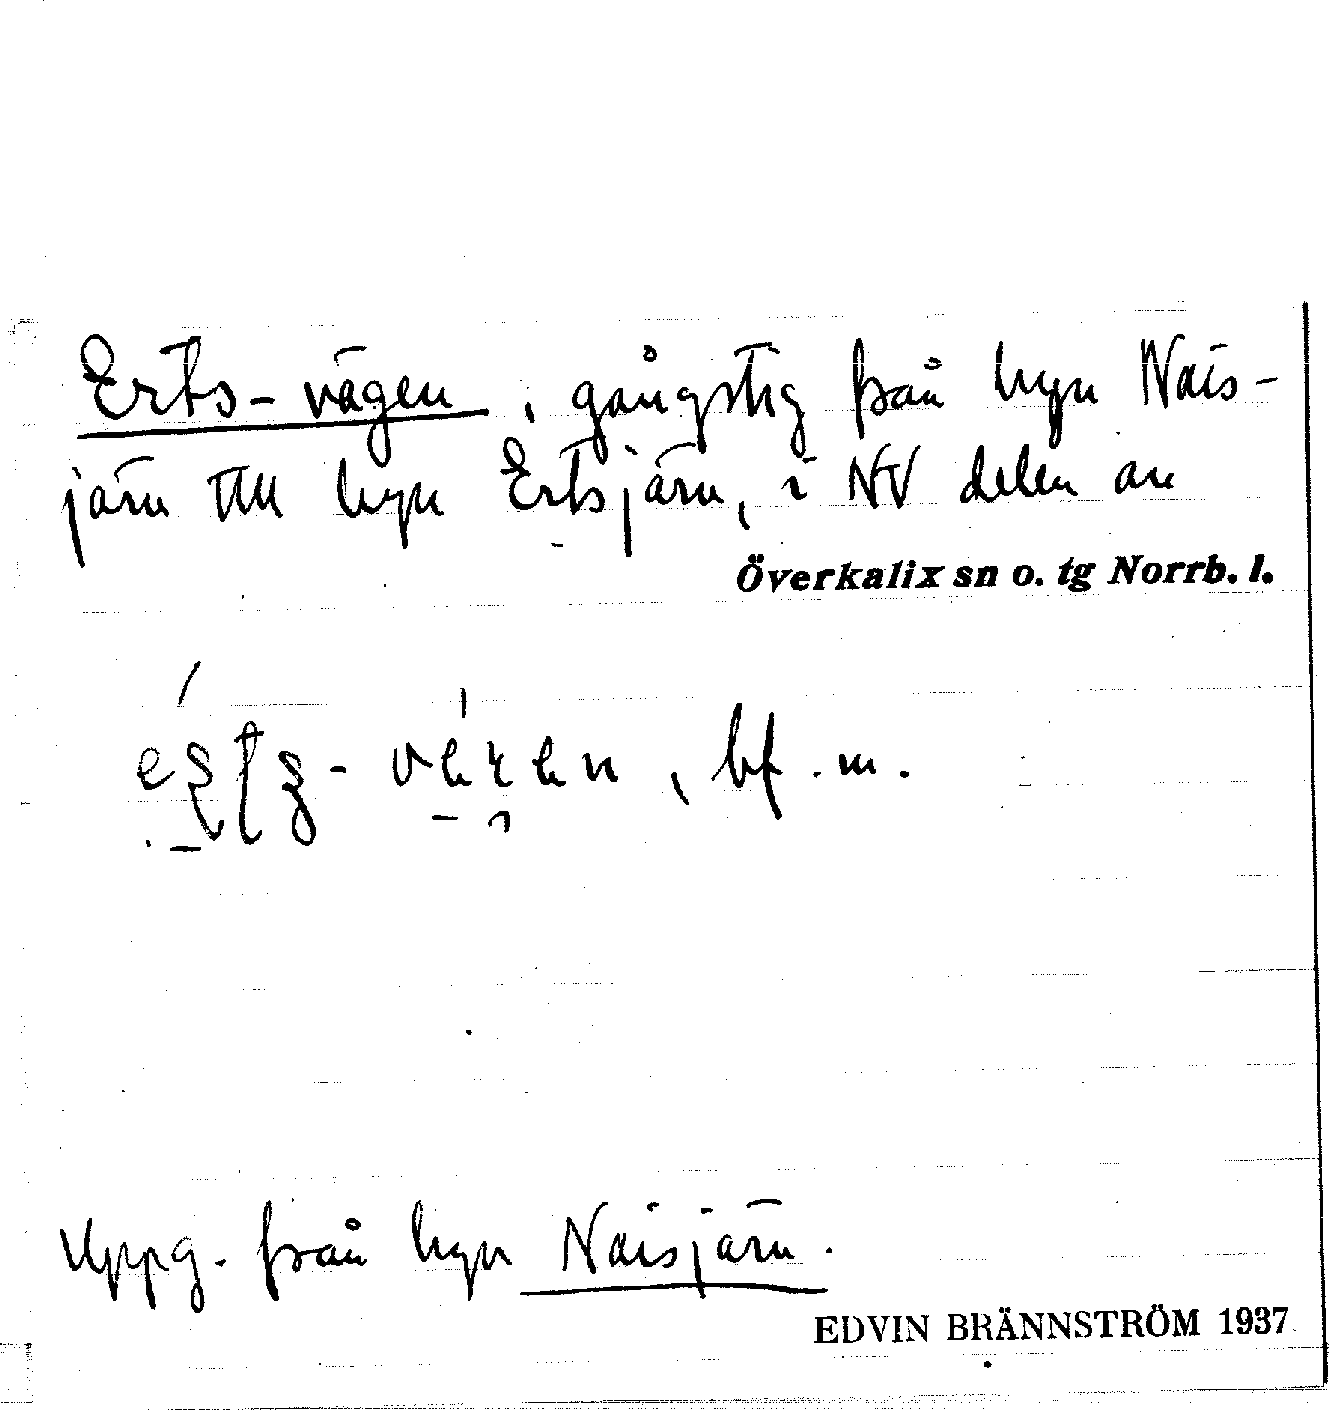 Erts-vägen, gångstig från byn Nais-
järn till byn Ertsjärn, i NV delen av
Överkalix sn o. tg Norrb. l.
bf. m.
Uppg. från byn Naisjärn.
EDVIN BRÄNNSTRÖM 1937